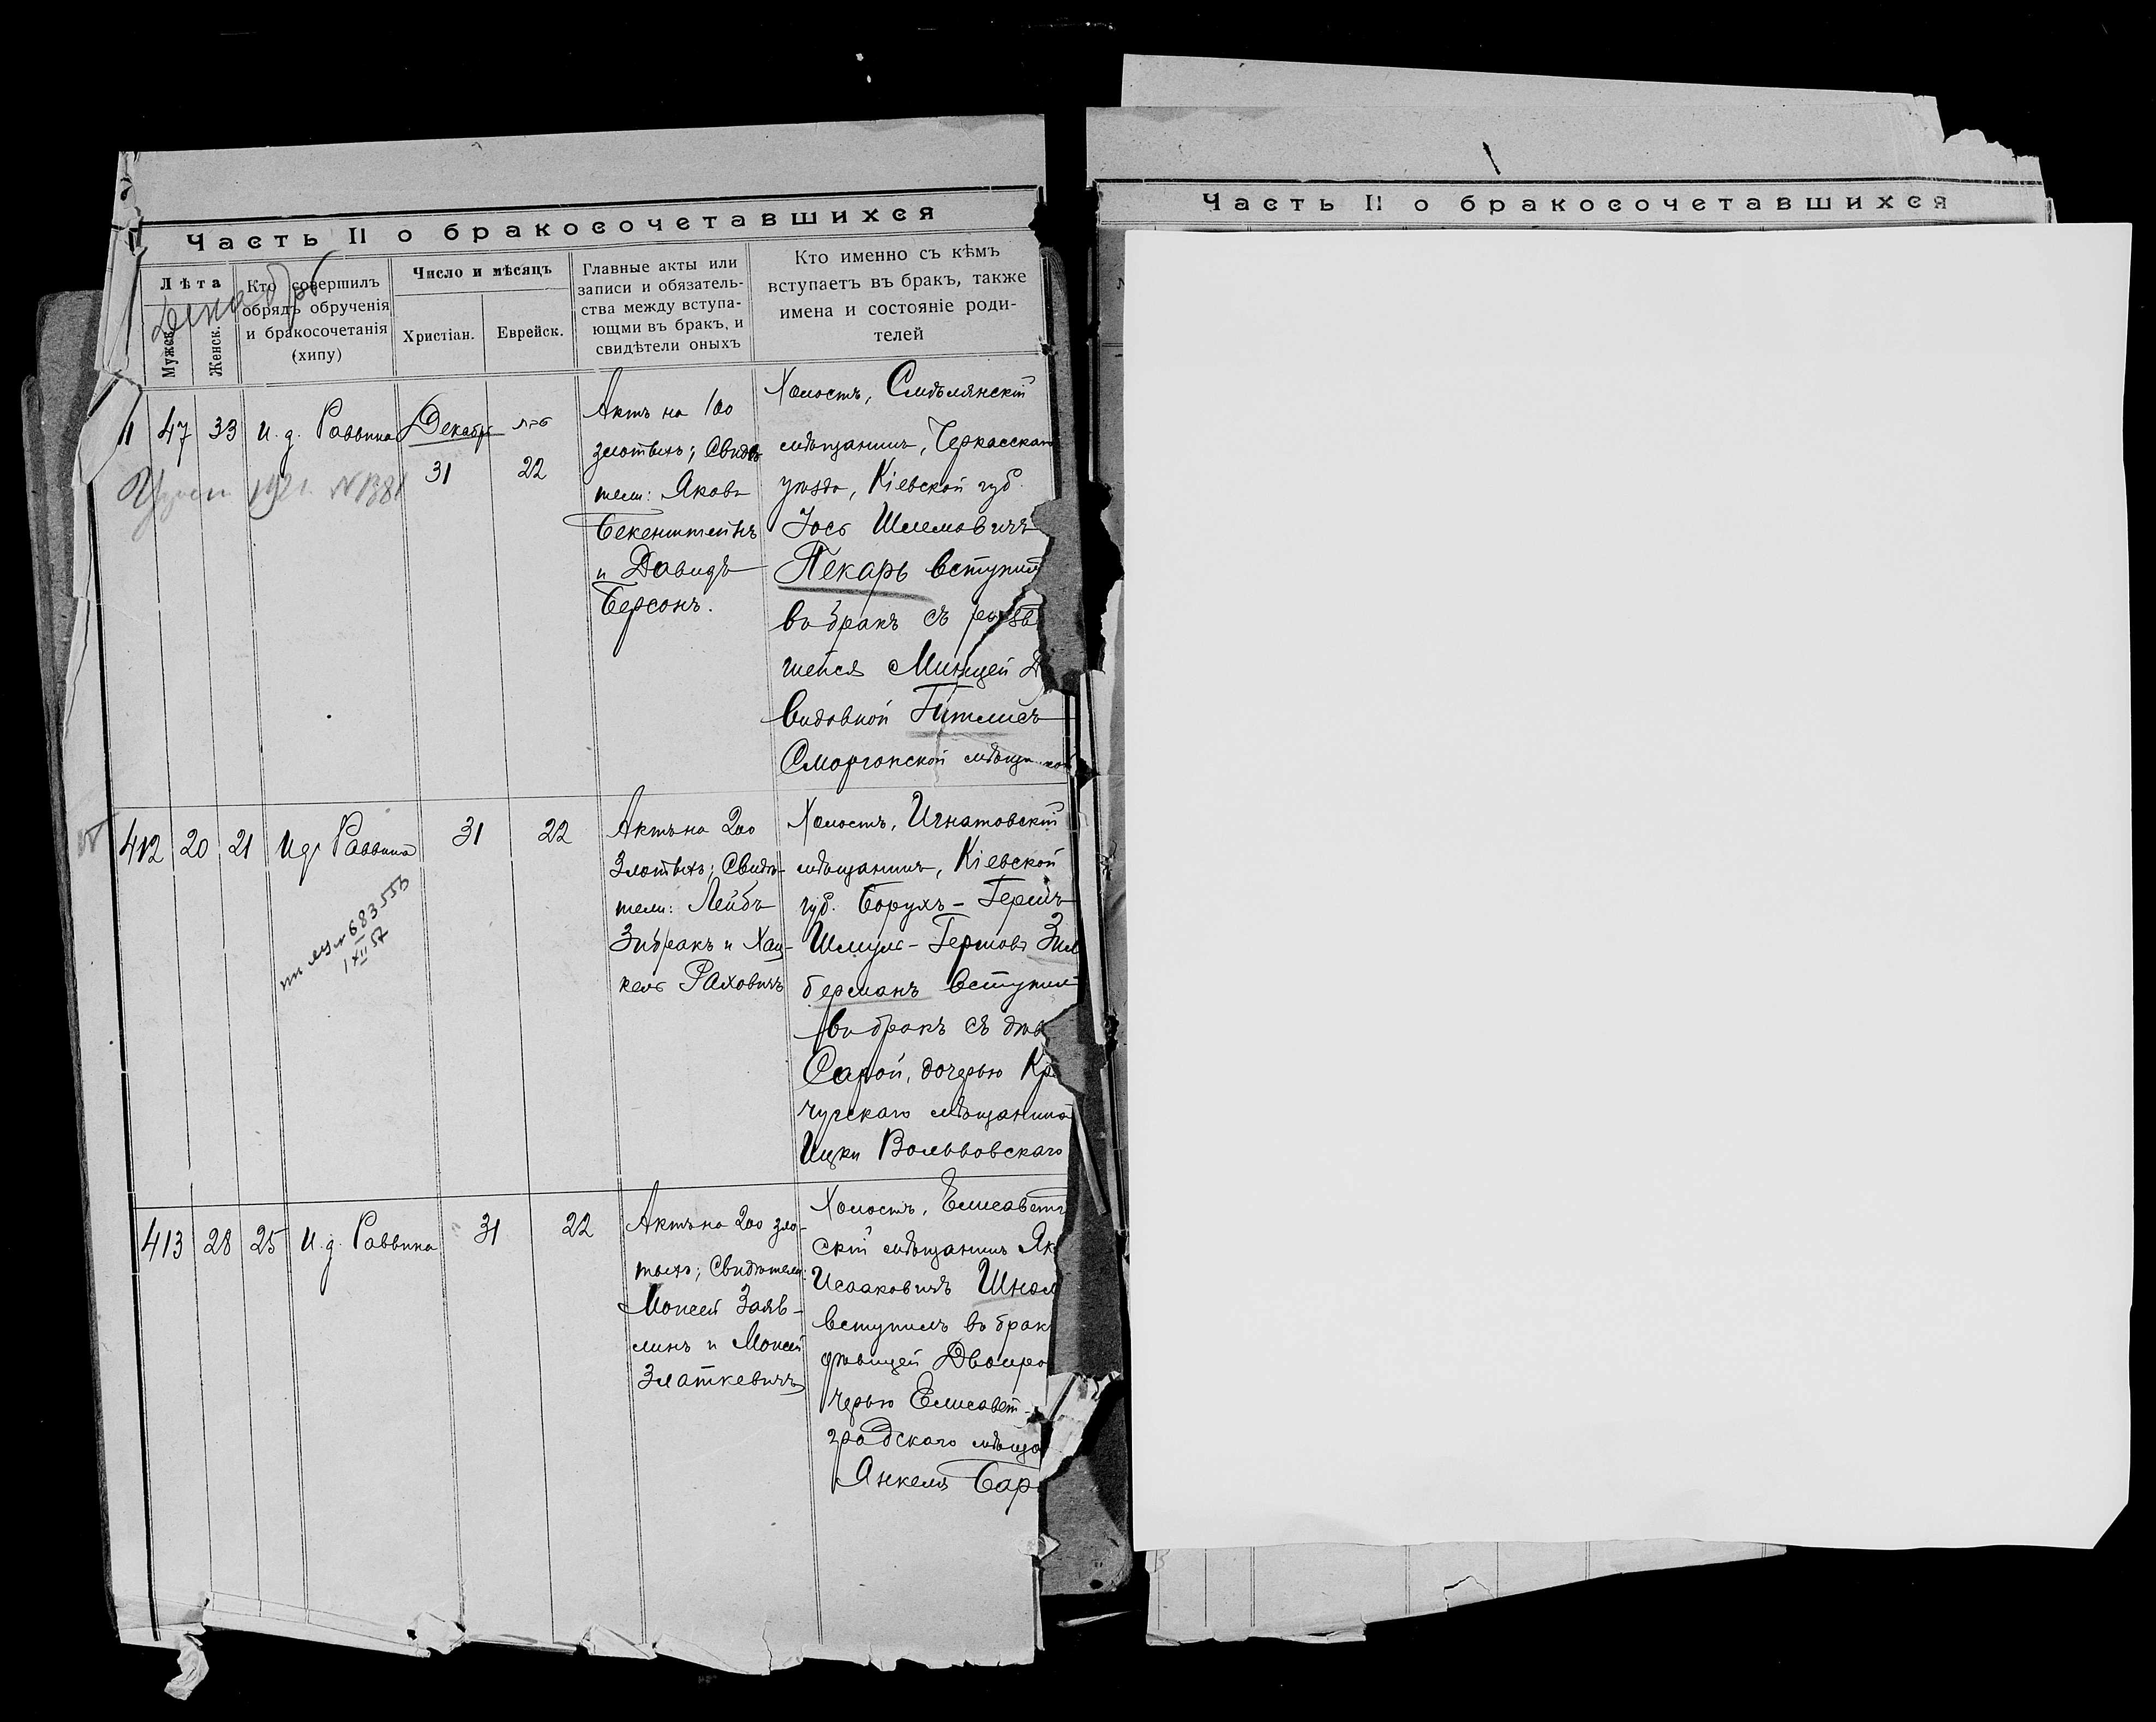 Часть II о бракосочетавшихся
Лѣта
Мужск.
Женск.
Кто совершилъ
обрядъ обрученія
и бракосочетанія
(хипу)
Число и мѣсяцъ
Христіан.
Еврейск.
Главные акты или
записи и обязатель-
ства между вступа-
ющми въ бракъ, и
свидѣтели оныхъ
Кто именно съ кѣмъ
вступаетъ въ бракъ, также
имена и состояніе роди-
телей
47
33
И. д. Раввина
Декабрь
31
22
Актъ на 100
злотыхъ; Свидѣ
тели: Яковъ
Бекенштейнъ
и Давидъ
Берсонъ.
Холостъ, Смѣлянскій
мѣщанинъ, Черкасскаго
уѣзда, Кіевской губ.
Іось Шлемовичъ
Пекарь вступилъ
въ бракъ съ
шейся
видовной
Сморгонской
412
20
21
И д Раввина
31
22
683555
1 XII 57
Актъ на 200
Злотыхъ; Свидѣ-
тели: Лейбъ
Зибракъ и Хац-
кель Раховичъ
Холостъ, Игнатовскій
мѣщанинъ, Кіевской
губ. Борухъ-Гершъ
Шмуль-Гершовъ Зил
берманъ вступилъ
въ бракъ съ дѣв
Сарой, дочерью Кр
чугскаго мѣщанина
Ицки Вольвовскаго
413
28
25
И. д. Раввина
31
22
Актъ на 200 зло-
тыхъ; Свидѣтели:
Моисей Заяв-
линъ и Моисей
Златкевичъ
Холостъ, Елисавет
скій мѣщанинъ Як
Исааковичъ
вступилъ въ брак
дѣвицей Двойро
черью Елисавет-
градскаго мѣща
Янкеля Бар
Часть II о бракосочетавшихся